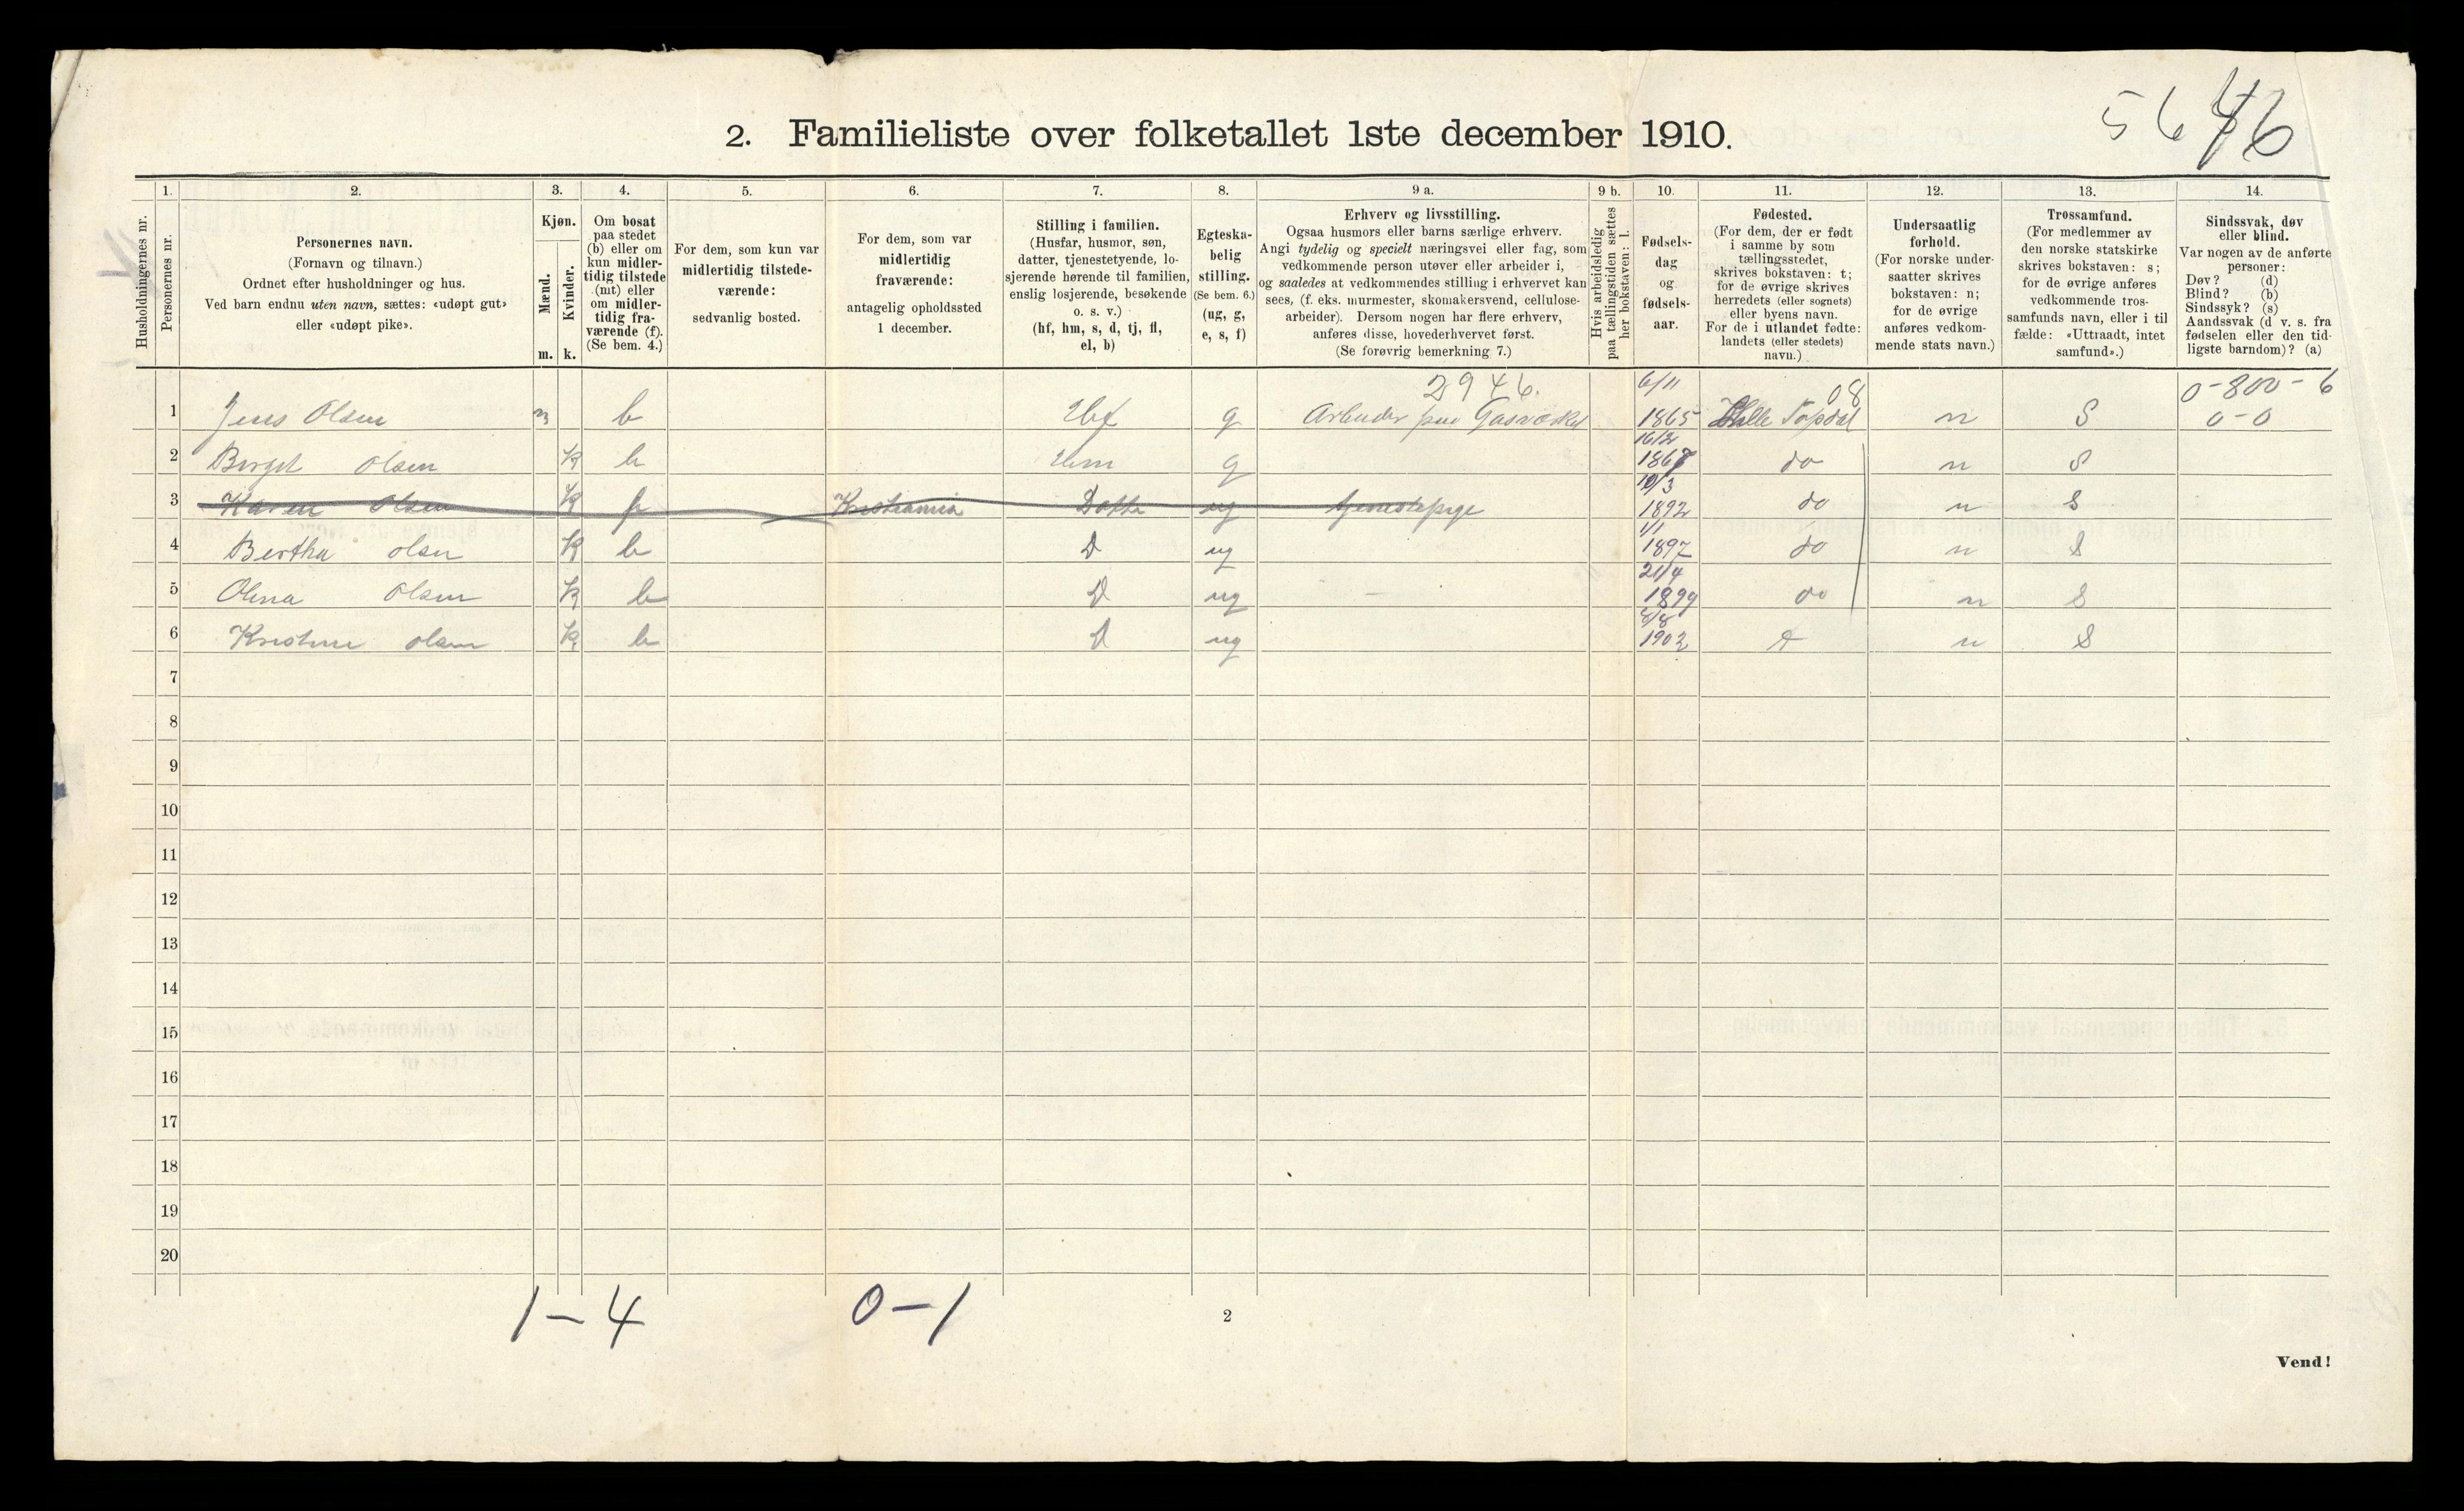 5646
2. Familieliste over folketallet 1ste december 1910.
1. 2. 3. 4. 5. 6. 7. 8. 9 a. 9 b. 10. 11. 12. 13. 14.
Husholdningernes nr.
Personernes nr.
Personernes navn.
(Fornavn og tilnavn.)
Ordnet efter husholdninger og hus.
Ved barn endnu uten navn, sættes: «udøpt gut»
eller «udøpt pike».
Kjøn.
Mænd.
Kvinder.
m. k.
Om bosat
paa stedet
(b) eller om
kun midler-
tidig tilstede
(mt) eller
om midler-
tidig fra-
værende (f).
(Se bem. 4.)
For dem, som kun var
midlertidig tilstede-
værende:
sedvanlig bosted.
For dem, som var
midlertidig
fraværende:
antagelig opholdssted
1 december.
Stilling i familien.
(Husfar, husmor, søn,
datter, tjenestetyende, lo-
sjerende hørende til familien,
enslig losjerende, besøkende
o. s. v.)
(hf, hm, s, d, tj, fl,
el, b)
Egteska-
belig
stilling.
(Se bem. 6.)
(ug, g,
e, s, f)
Erhverv og livsstilling.
Ogsaa husmors eller barns særlige erhverv.
Angi tydelig og specielt næringsvei eller fag, som
vedkommende person utøver eller arbeider i,
og saaledes at vedkommendes stilling i erhvervet kan
sees, (f. eks. murmester, skomakersvend, cellulose-
arbeider). Dersom nogen har flere erhverv,
anføres disse, hovederhvervet først.
(Se forøvrig bemerkning 7.)
Hvis arbeidsledig
paa tællingstiden sættes
her bokstaven: l.
Fødsels-
dag
og
fødsels-
aar.
Fødested.
(For dem, der er født
i samme by som
tællingsstedet,
skrives bokstaven: t;
for de øvrige skrives
herredets (eller sognets)
eller byens navn.
For de i utlandet fødte:
landets (eller stedets)
navn.)
Undersaatlig
forhold.
(For norske under-
saatter skrives
bokstaven: n;
for de øvrige
anføres vedkom-
mende stats navn.)
Trossamfund.
(For medlemmer av
den norske statskirke
skrives bokstaven: s;
for de øvrige anføres
vedkommende tros-
samfunds navn, eller i til
fælde: «Uttraadt, intet
samfund».)
Sindssvak, døv
eller blind.
Var nogen av de anførte
personer:
Døv? (d)
Blind? (b)
Sindssyk? (s)
Aandssvak (d v. s. fra
fødselen eller den tid-
ligste barndom)? (a)
2946. 6/11 08 0-800-6
1 Jens Olsen m b Hf g Arbeider paa Gasværket 1865 Topdal n S 0-0
16/2
2 Berget Olsen k b Hm g 1867 do n S
10/3
3 Karen Olsen k f Kristiania Datter ug tjenestepige 1892 do n S
1/1
4 Bertha olsen k b D ug 1897 do n S
21/4
5 Olena Olsen k b D ug - 1899 do n S
8/8
6 Kristine olsen k b D ug 1902 t n S
7
8
9
10
11
12
13
14
15
16
17
18
19
20
1-4 0-1
2
Vend!